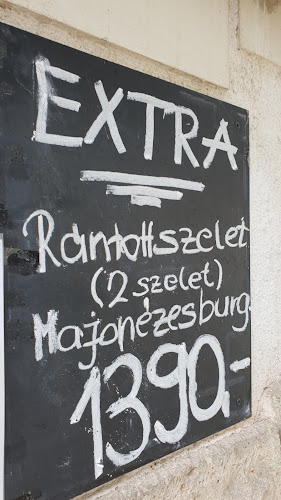 EXTRA
Rántottszelet
(2 szelet)
Majonézesburg.
1390,-